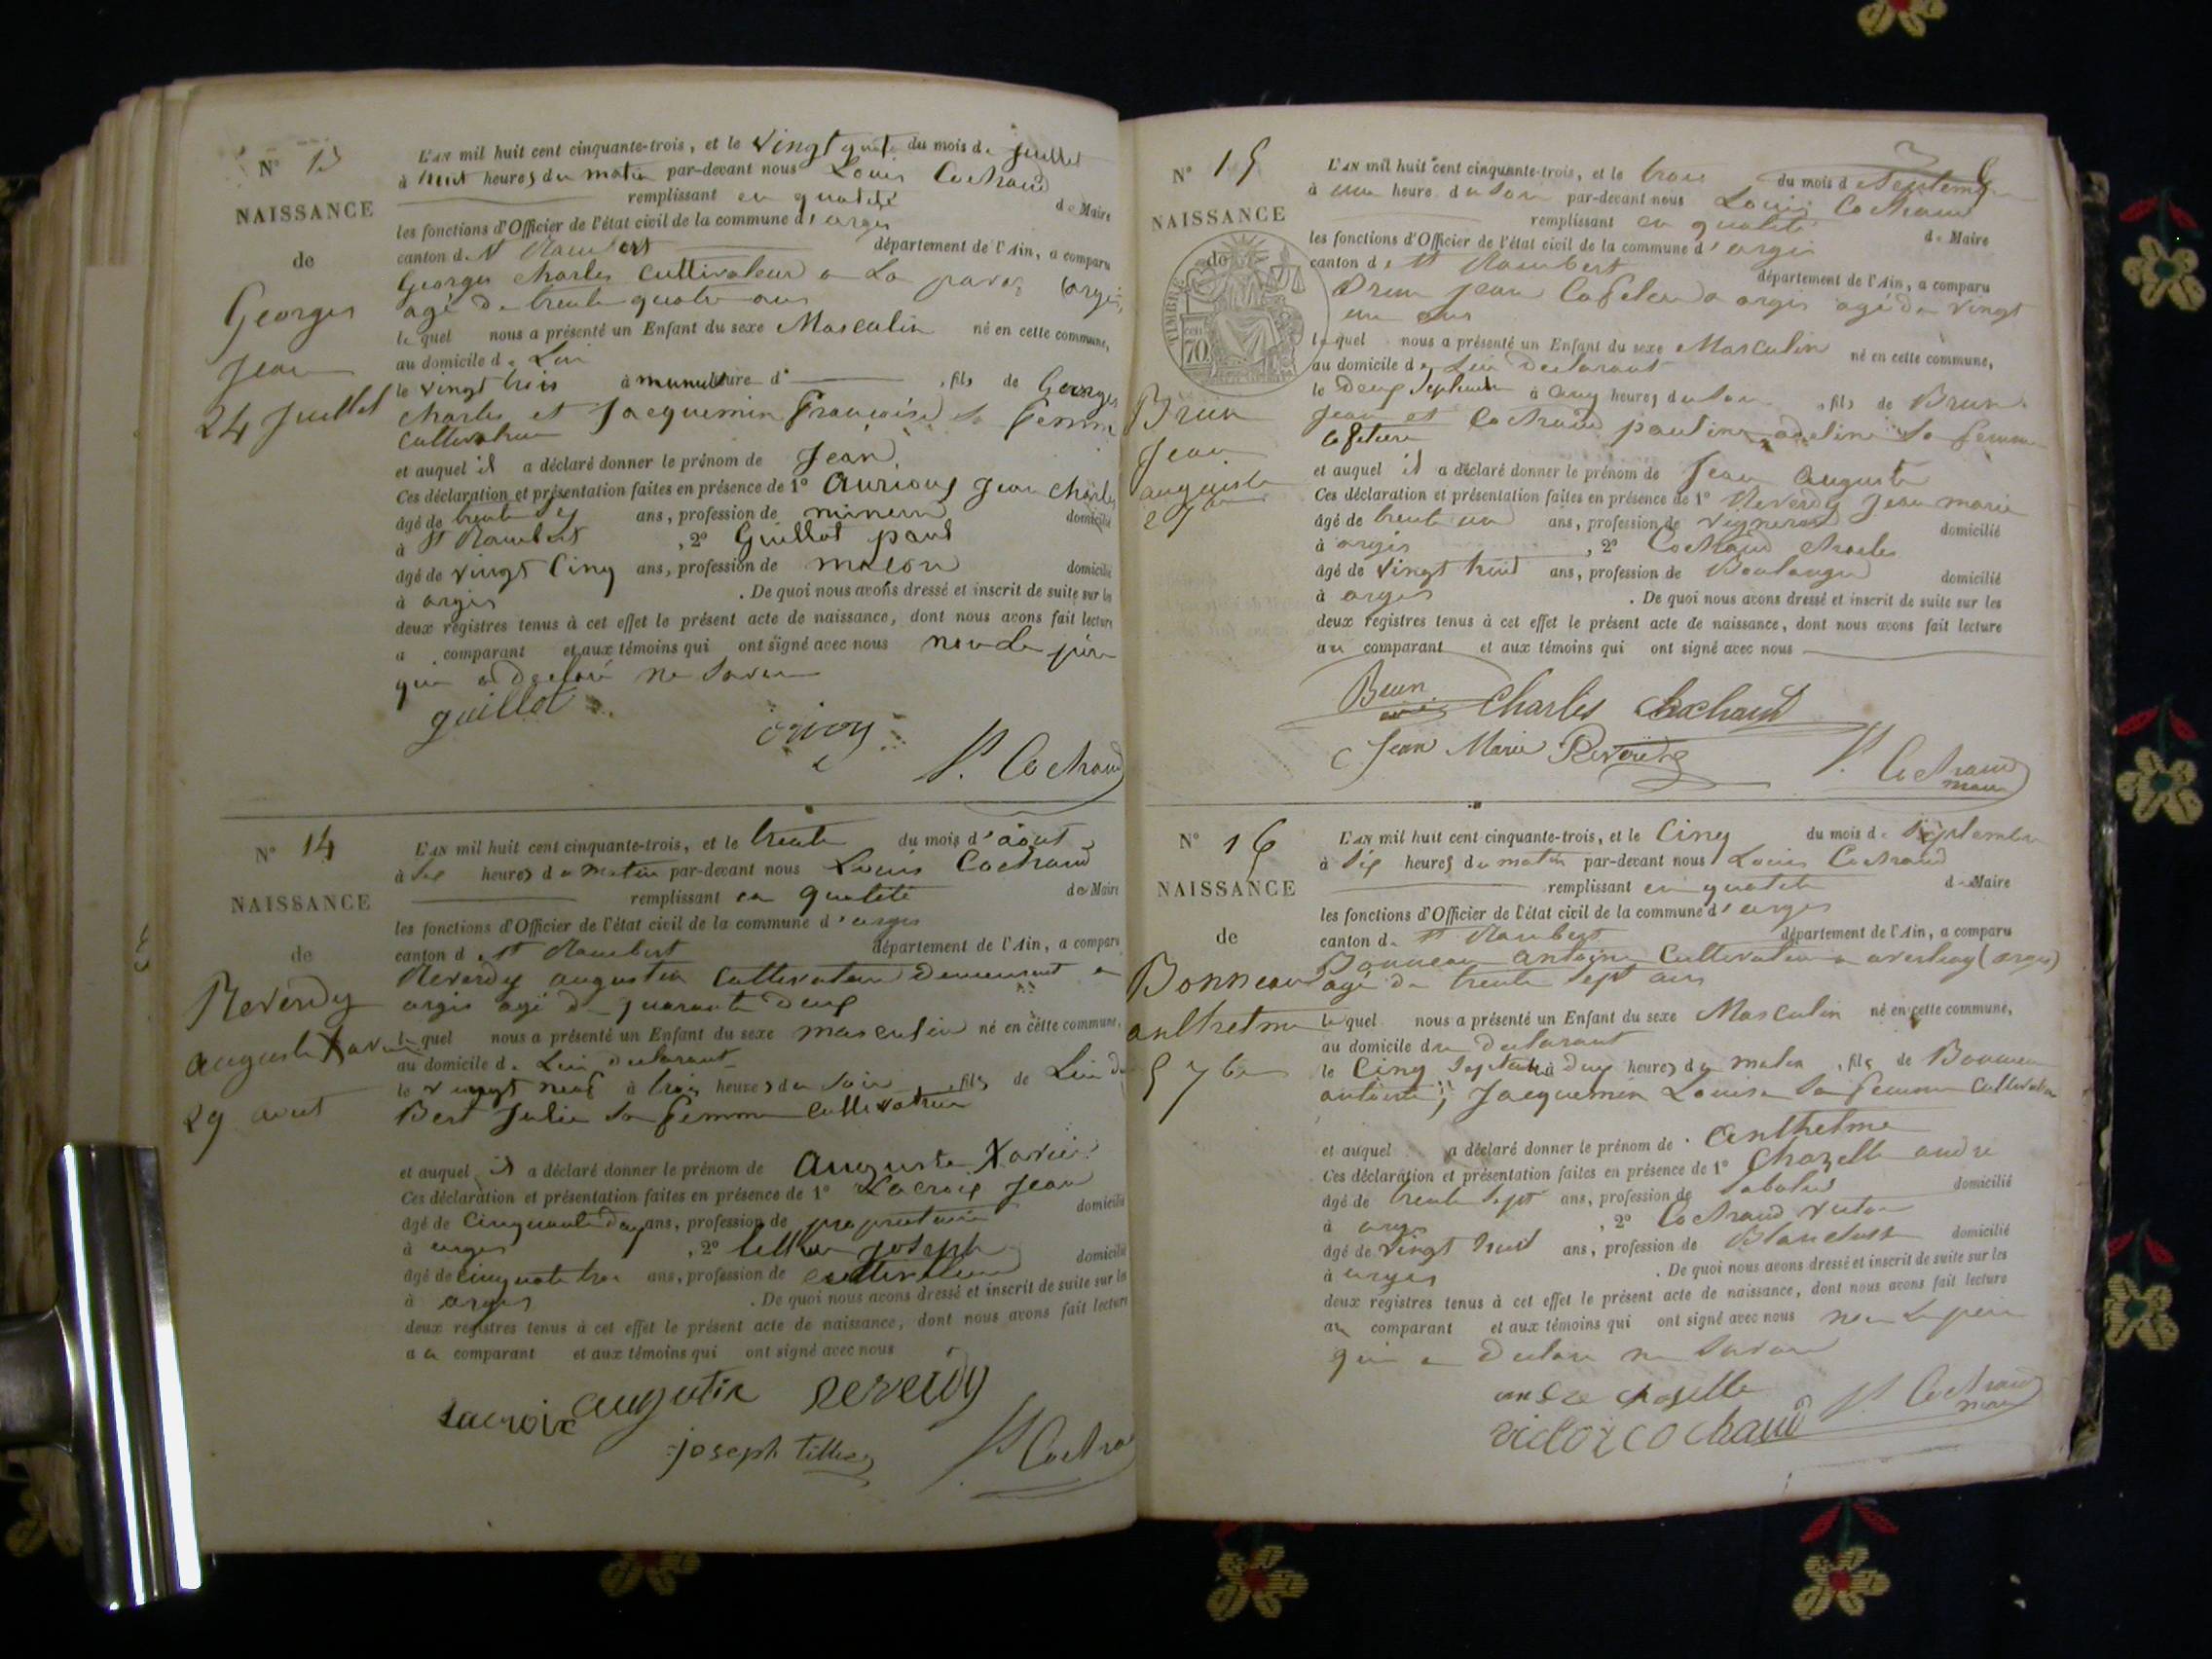 N° 13
NAISSANCE
de
Georges
Jean
24 Juillet
L'AN mil huit cent cinquante-trois, et le vingt quatr du mois de juillet
à huit heures du matin par-devant nous Louis Cochaud
remplissant en qualité de Maire
les fonctions d'Officier de l'état civil de la commune d'argis
canton de St Rambert département de l'Ain, a comparu
Georges Charles cultivateur a La (argis)
agé de trente quatre ans
lequel nous a présenté un Enfant du sexe Masculin né en cette commune,
au domicile de Lui
le vingt trois à heure d , fils de Georges
Charles et Jacquemin Françoise sa femme
cultivatrice
et auquel il a déclaré donner le prénom de Jean
Ces déclaration et présentation faites en présence de 1° Jean Charles
âgé de trente ans, profession de mineur domicilié
à St Rambert , 2° Guillot paul
âgé de vingt Cinq ans, profession de maçon domicilié
à argis . De quoi nous avons dressé et inscrit de suite sur les
deux registres tenus à cet effet le présent acte de naissance, dont nous avons fait lecture
a comparant et aux témoins qui ont signé avec nous non le père
qui a déclaré ne savoir
guillot
Ls Cochaud
N° 14
NAISSANCE
de
Reverdy
auguste Xavier
29 aout
L'AN mil huit cent cinquante-trois, et le trente du mois d'aout
à six heures du matin par-devant nous Louis Cochaud
remplissant en qualité de Maire
les fonctions d'Officier de l'état civil de la commune d'argis
canton de St Rambert département de l'Ain, a comparu
Reverdy augustin cultivateur Demeurant a
argis agé de quarante deux
lequel nous a présenté un Enfant du sexe masculin né en cette commune,
au domicile de Lui declarant
le vingt neuf à trois heures du soir , fils de Lui
Best Julie sa femme cultivatrice
et auquel il a déclaré donner le prénom de Auguste Xavier
Ces déclaration et présentation faites en présence de 1° Lacroix Jean
âgé de Cinquante ans, profession de propriétaire domicilié
à argis , 2° joseph
âgé de cinquante trois ans, profession de cultivateur domicilié
à argis . De quoi nous avons dressé et inscrit de suite sur les
deux registres tenus à cet effet le présent acte de naissance, dont nous avons fait lecture
au comparant et aux témoins qui ont signé avec nous
Lacroix augustin reverdy
joseph
Ls Cochaud
N° 15
NAISSANCE
de
TIMBRE
70
Brun
Jean
auguste
2 7bre
L'AN mil huit cent cinquante-trois, et le trois du mois de septembre
à une heure du soir par-devant nous Louis Cochaud
remplissant en qualité de Maire
les fonctions d'Officier de l'état civil de la commune d'argis
canton de St Rambert département de l'Ain, a comparu
Brun jean a argis agé de vingt
un ans
lequel nous a présenté un Enfant du sexe Masculin né en cette commune,
au domicile de Lui declarant
le Deux Septembre à cinq heures du soir , fils de Brun
jean et Cochaud pauline adeline sa femme
et auquel il a déclaré donner le prénom de Jean auguste
Ces déclaration et présentation faites en présence de 1° Reverdy Jean marie
âgé de trente un ans, profession de vigneron domicilié
à argis , 2° Cochaud Charles
âgé de vingt huit ans, profession de Boulanger domicilié
à argis . De quoi nous avons dressé et inscrit de suite sur les
deux registres tenus à cet effet le présent acte de naissance, dont nous avons fait lecture
au comparant et aux témoins qui ont signé avec nous
Brun Charles Cochaud
Jean Marie Reverdy
Ls Cochaud
maire
N° 16
NAISSANCE
de
Bonneau
anthelme
5 7bre
L'AN mil huit cent cinquante-trois, et le Cinq du mois de septembre
à six heures du matin par-devant nous Louis Cochaud
remplissant en qualité de Maire
les fonctions d'Officier de l'état civil de la commune d'argis
canton de St Rambert département de l'Ain, a comparu
Bonneau antoine Cultivateur a (argis)
agé de trente sept ans
lequel nous a présenté un Enfant du sexe Masculin né en cette commune,
au domicile du declarant
le Cinq Septembre à deux heures du matin , fils de Bonneau
antoine Jacquemin Louise sa femme Cultivatrice
et auquel a déclaré donner le prénom de Anthelme
Ces déclaration et présentation faites en présence de 1° Chazelle andre
âgé de trente sept ans, profession de sabotier domicilié
à argis , 2° Cochaud victor
âgé de vingt huit ans, profession de domicilié
à argis . De quoi nous avons dressé et inscrit de suite sur les
deux registres tenus à cet effet le présent acte de naissance, dont nous avons fait lecture
au comparant et aux témoins qui ont signé avec nous non le père
qui a déclaré ne savoir
andre chaselle
victor cochaud
Ls Cochaud
maire